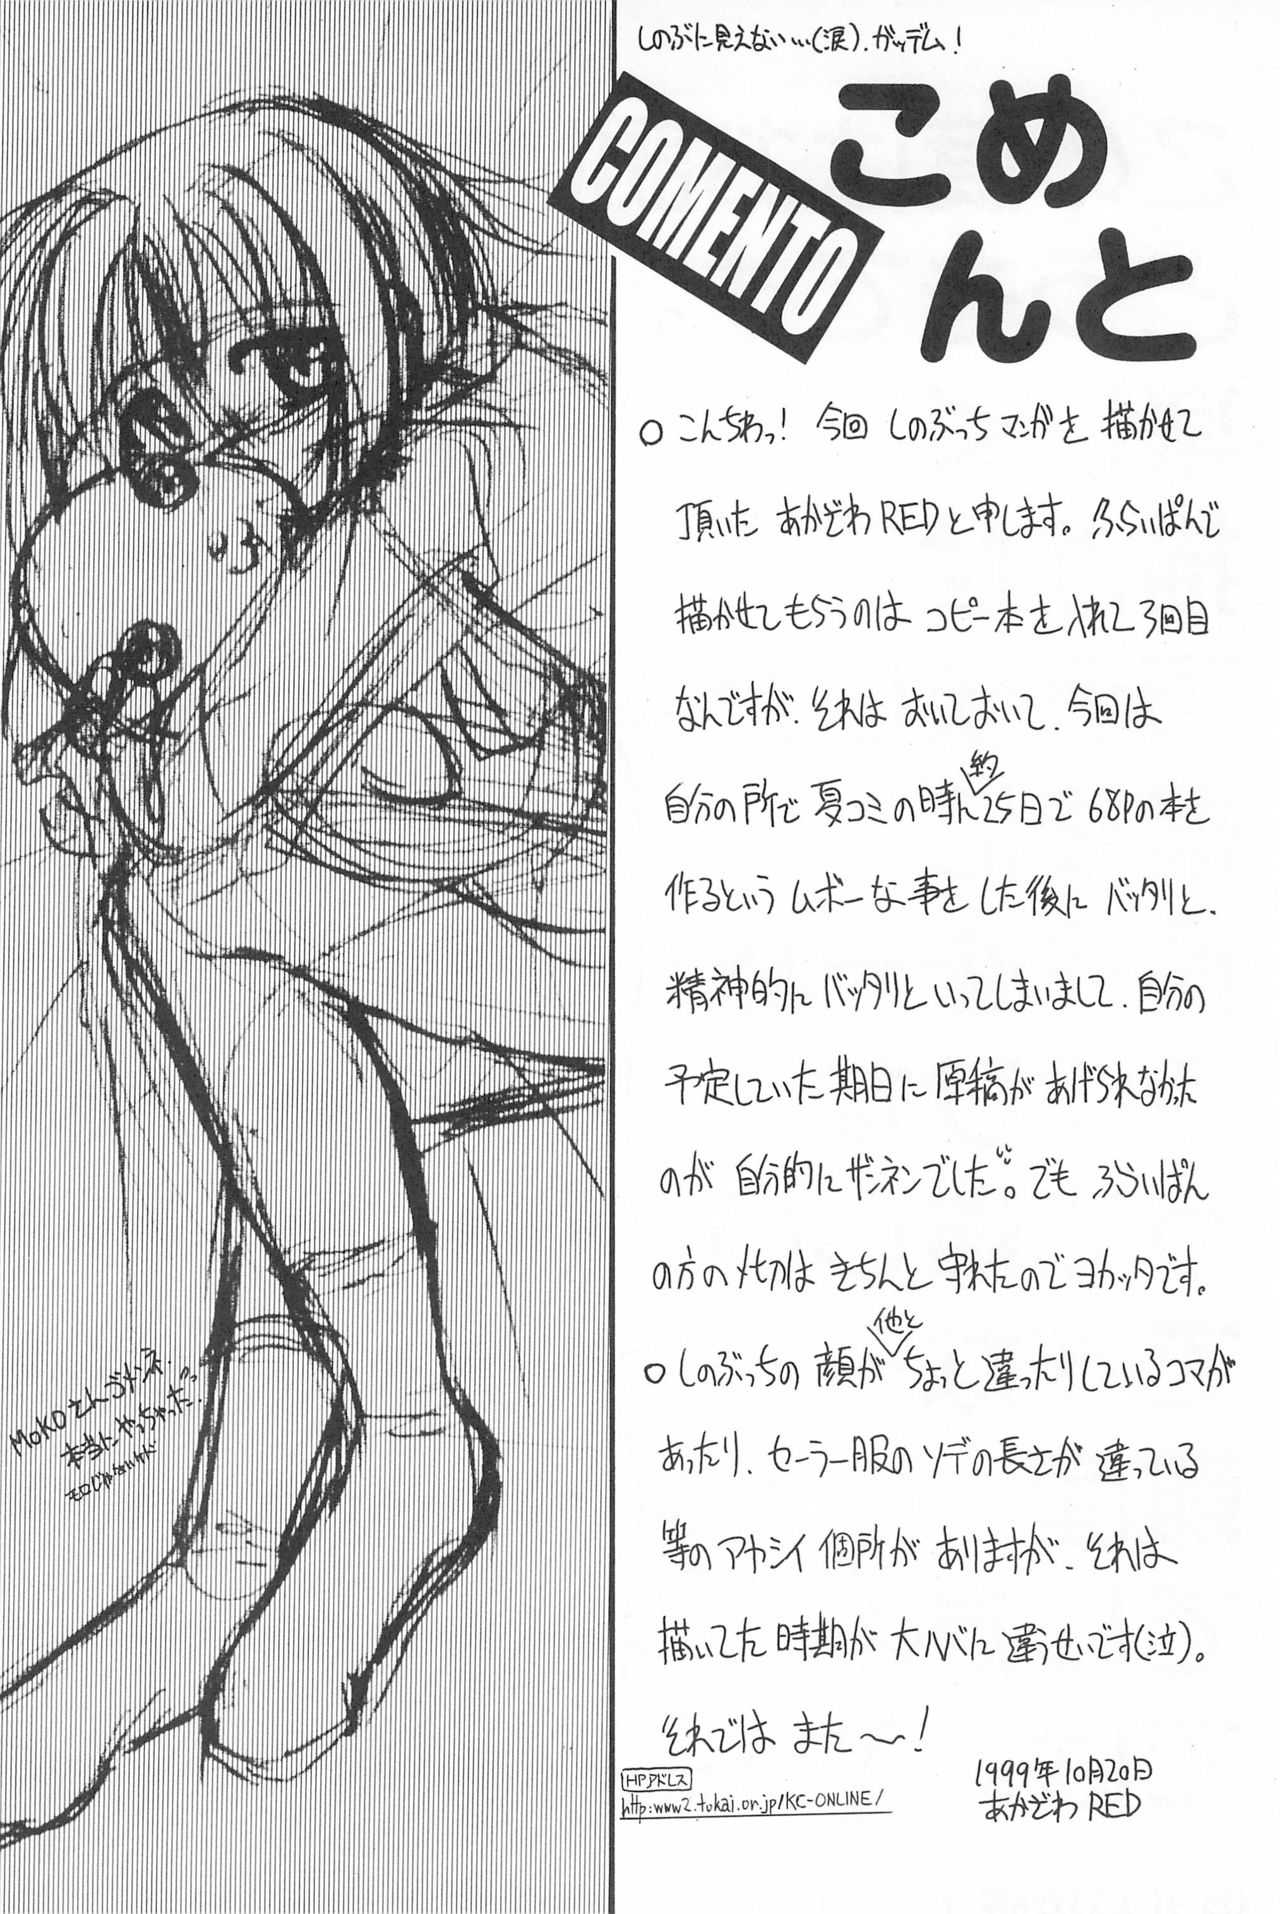 しのぶに見えない…(涙).ガッデム!
こめんと
COMENTO
○こんちわっ! 今回 しのぶっちマンガを 描かせて
頂いた あかざわREDと申します。ふらいぱんで
描かせてもらうのは コピー本を入れて3回目
なんですが、それは おいておいて、今回は
自分の所で 夏コミの時に約25日で 68Pの本を
作るという ムボーな事を した後に バッタリと、
精神的に バッタリと いってしまいまして、自分の
予定していた 期日に 原稿が あげられなかった
のが 自分的に ザンネンでした。でも ふらいぱん
の方の〆切は きちんと 守れたので ヨカッタです。
○しのぶっちの 顔が 他と ちょっと違ったりしているコマが
あったり、セーラー服のソデの長さが 違っている
等のアヤシイ 個所が ありますが、それは
描いてた 時期が 大ハバに 違うせいです(泣)。
それでは また〜!
1999年10月20日
あかざわ RED
HPアドレス
http:www2.tokai.or.jp/KC-ONLINE/
MOKOさんゴメンネ.
本当にやっちゃった
モロじゃないけど